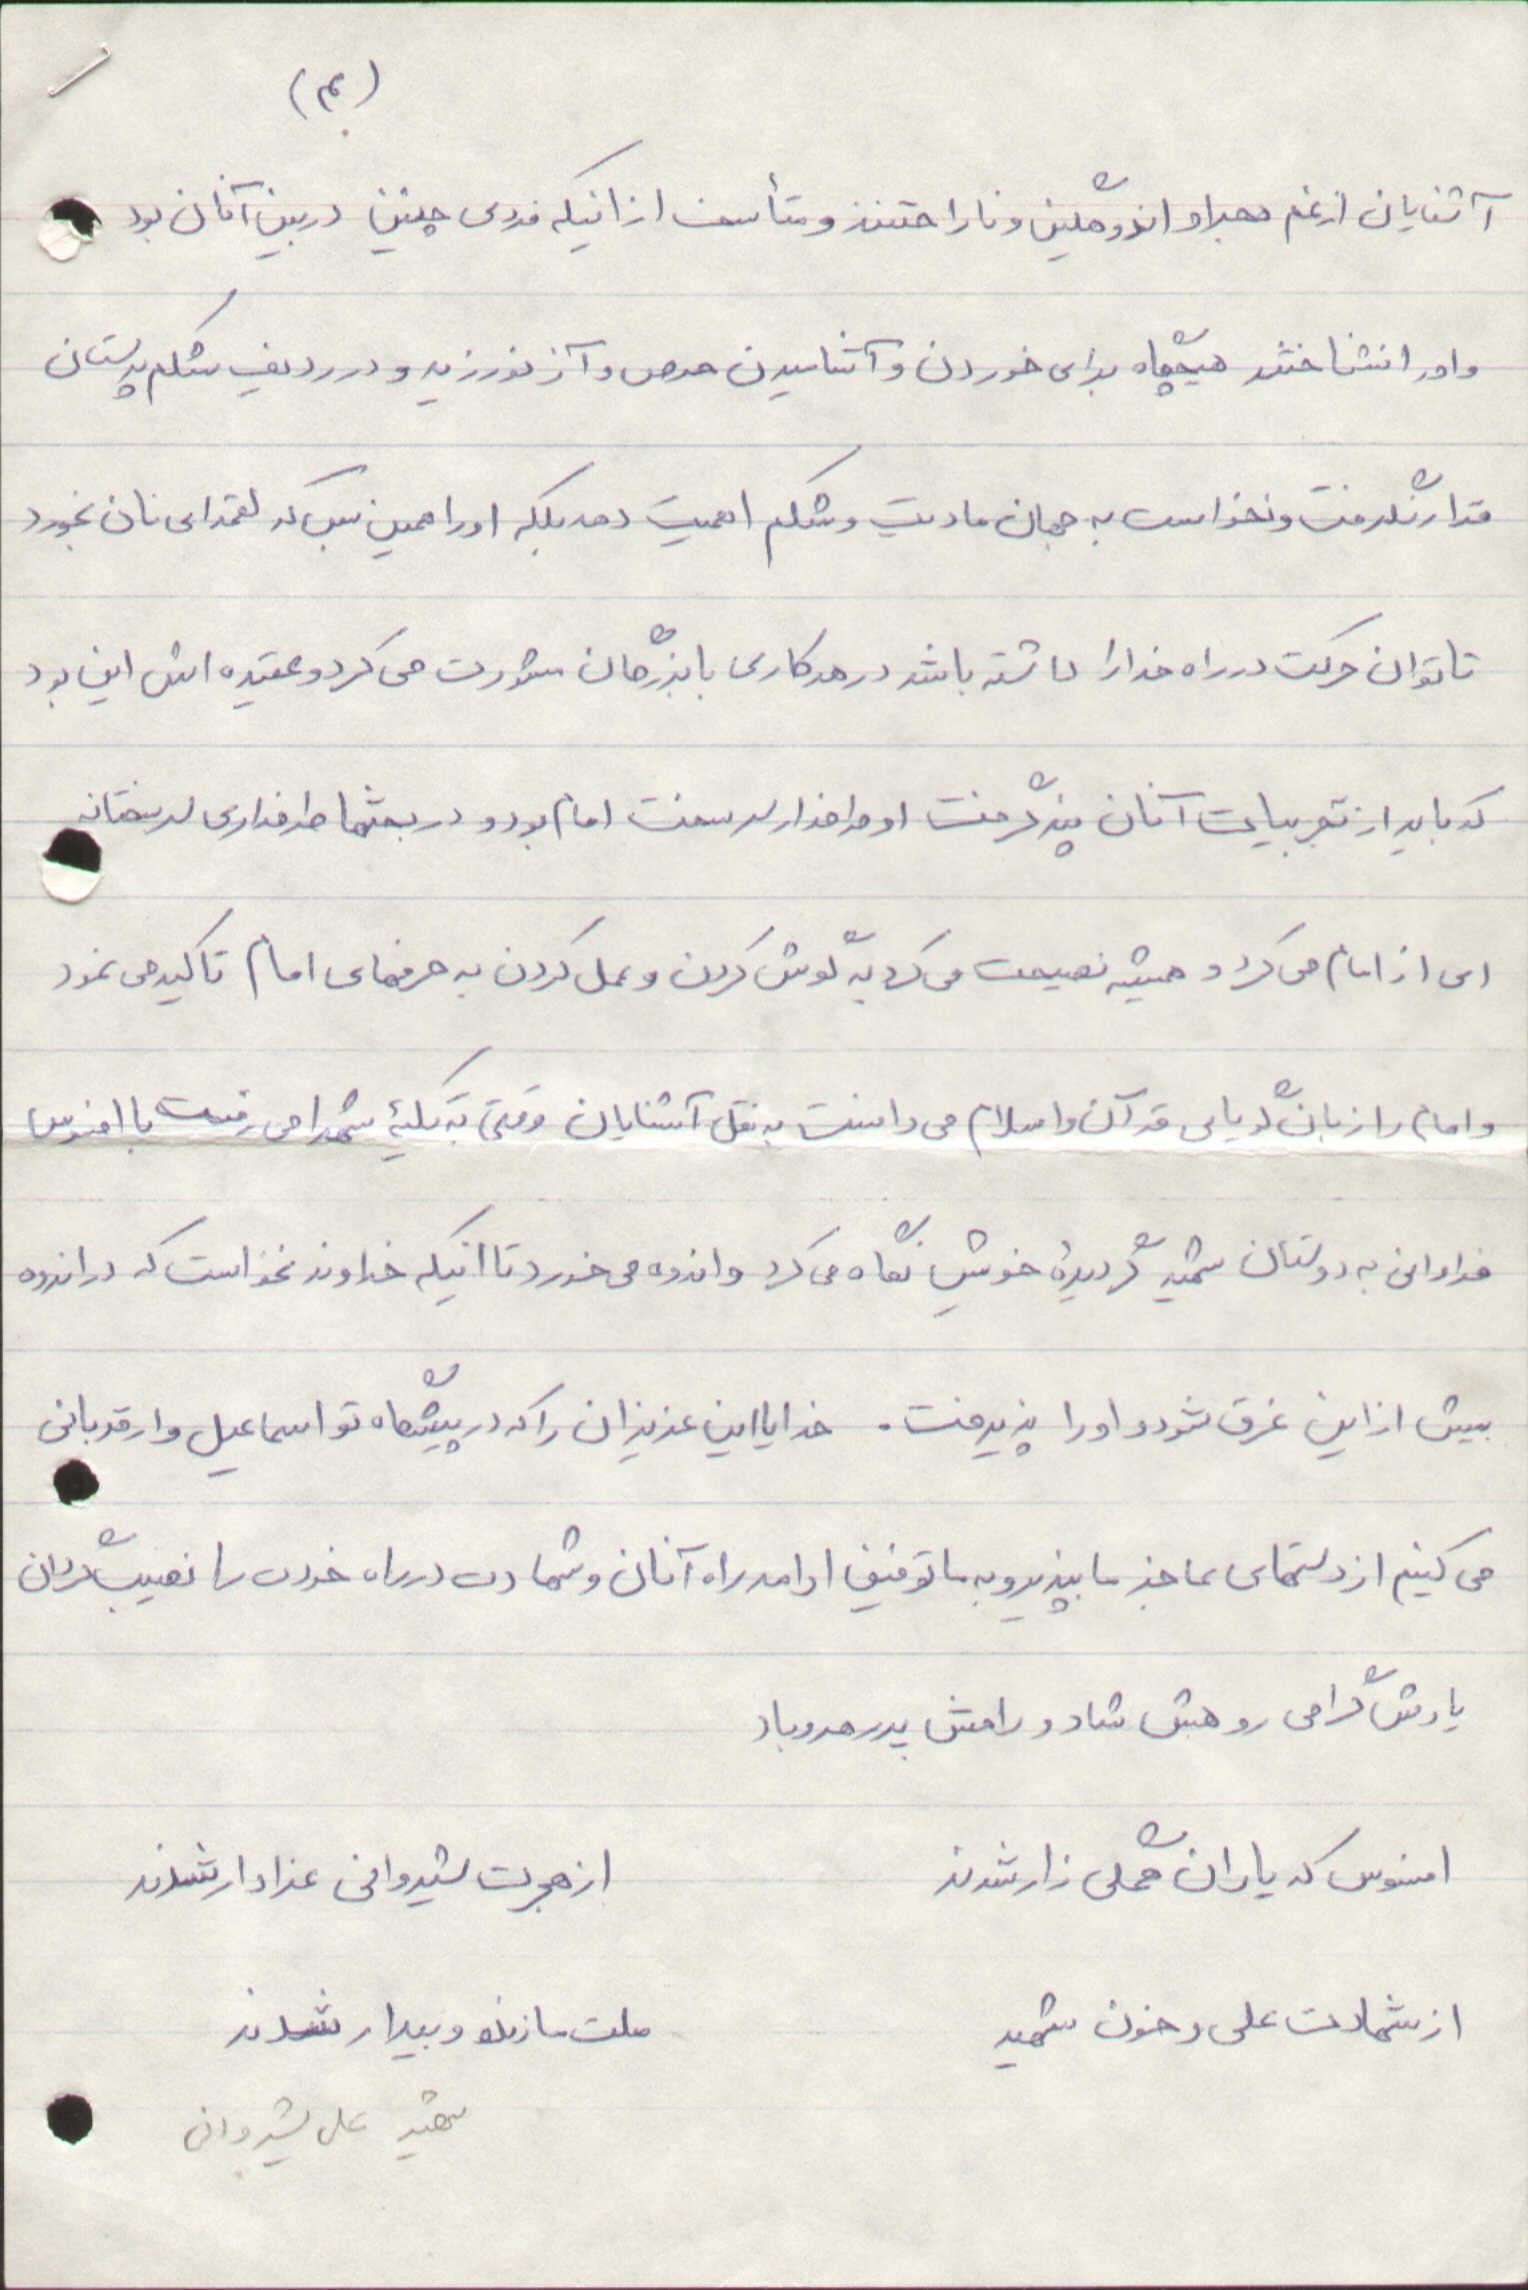 (۴)
آشنایان از غم هجر او اندوهگین و ناراحتند و متأسف از اینکه فردی چنین در بین آنان بود
و او را نشناختند هیچگاه برای خوردن و آشامیدن حرص و آز نورزید و در ردیف شکم پرستان
قرار نگرفت و نخواست به جهان مادیت و شکم اهمیت دهد بلکه او را همین بس که لقمه ای نان بخورد
تا توان حرکت در راه خدا را داشته باشد در هر کاری با بزرگان مشورت می کرد و عقیده اش این بود
که باید از تجربیات آنان پند گرفت او طرفدار سرسخت امام بود و در بحثها طرفداری سرسختانه
ای از امام می کرد و همیشه نصیحت می کرد به گوش کردن و عمل کردن به حرفهای امام تاکید می نمود
و امام را زبان گویای قرآن و اسلام می دانست به نقل آشنایان وقتی به تکیهٔ شهدا می رفت با افسوس
فراوانی به دوستان شهید گردیدهٔ خویش نگاه می کرد و اندوه می خورد تا اینکه خداوند نخواست که در اندوه
بیش از این غرق شود و او را پذیرفت. خدایا این عزیزان را که در پیشگاه تو اسماعیل وار قربانی
می کنیم از دستهای عاجز ما بپذیر و به ما توفیق ادامه راه آنان و شهادت در راه خودت را نصیب گردان
یادش گرامی روحش شاد و راهش پر رهرو باد
افسوس که یاران همگی زار شدند از هجرت شیروانی عزادار شدند
از شهادت علی و خون شهید ملت ما زنده و بیدار شدند
شهید علی شیروانی